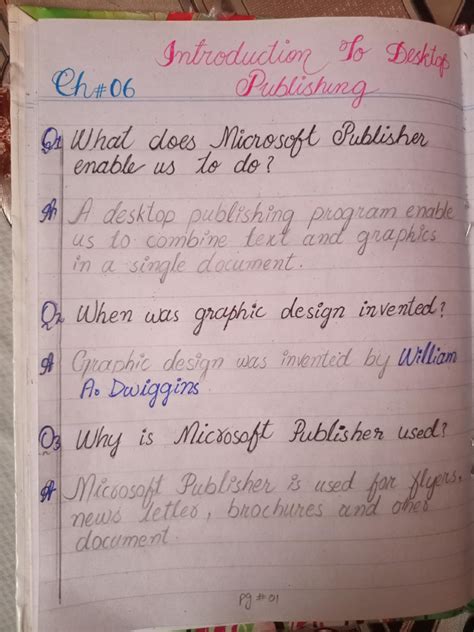 Introduction To Desktop
Ch#06 Publishing
Q1 What does Microsoft Publisher
enable us to do?
A A desktop publishing program enable
us to combine text and graphics
in a single document.
Q2 When was graphic design invented?
A Graphic design was invented by William
A. Dwiggins
Q3 Why is Microsoft Publisher used?
A Microsoft Publisher is used for flyers,
news letter, brochures and other
document.
pg # 01